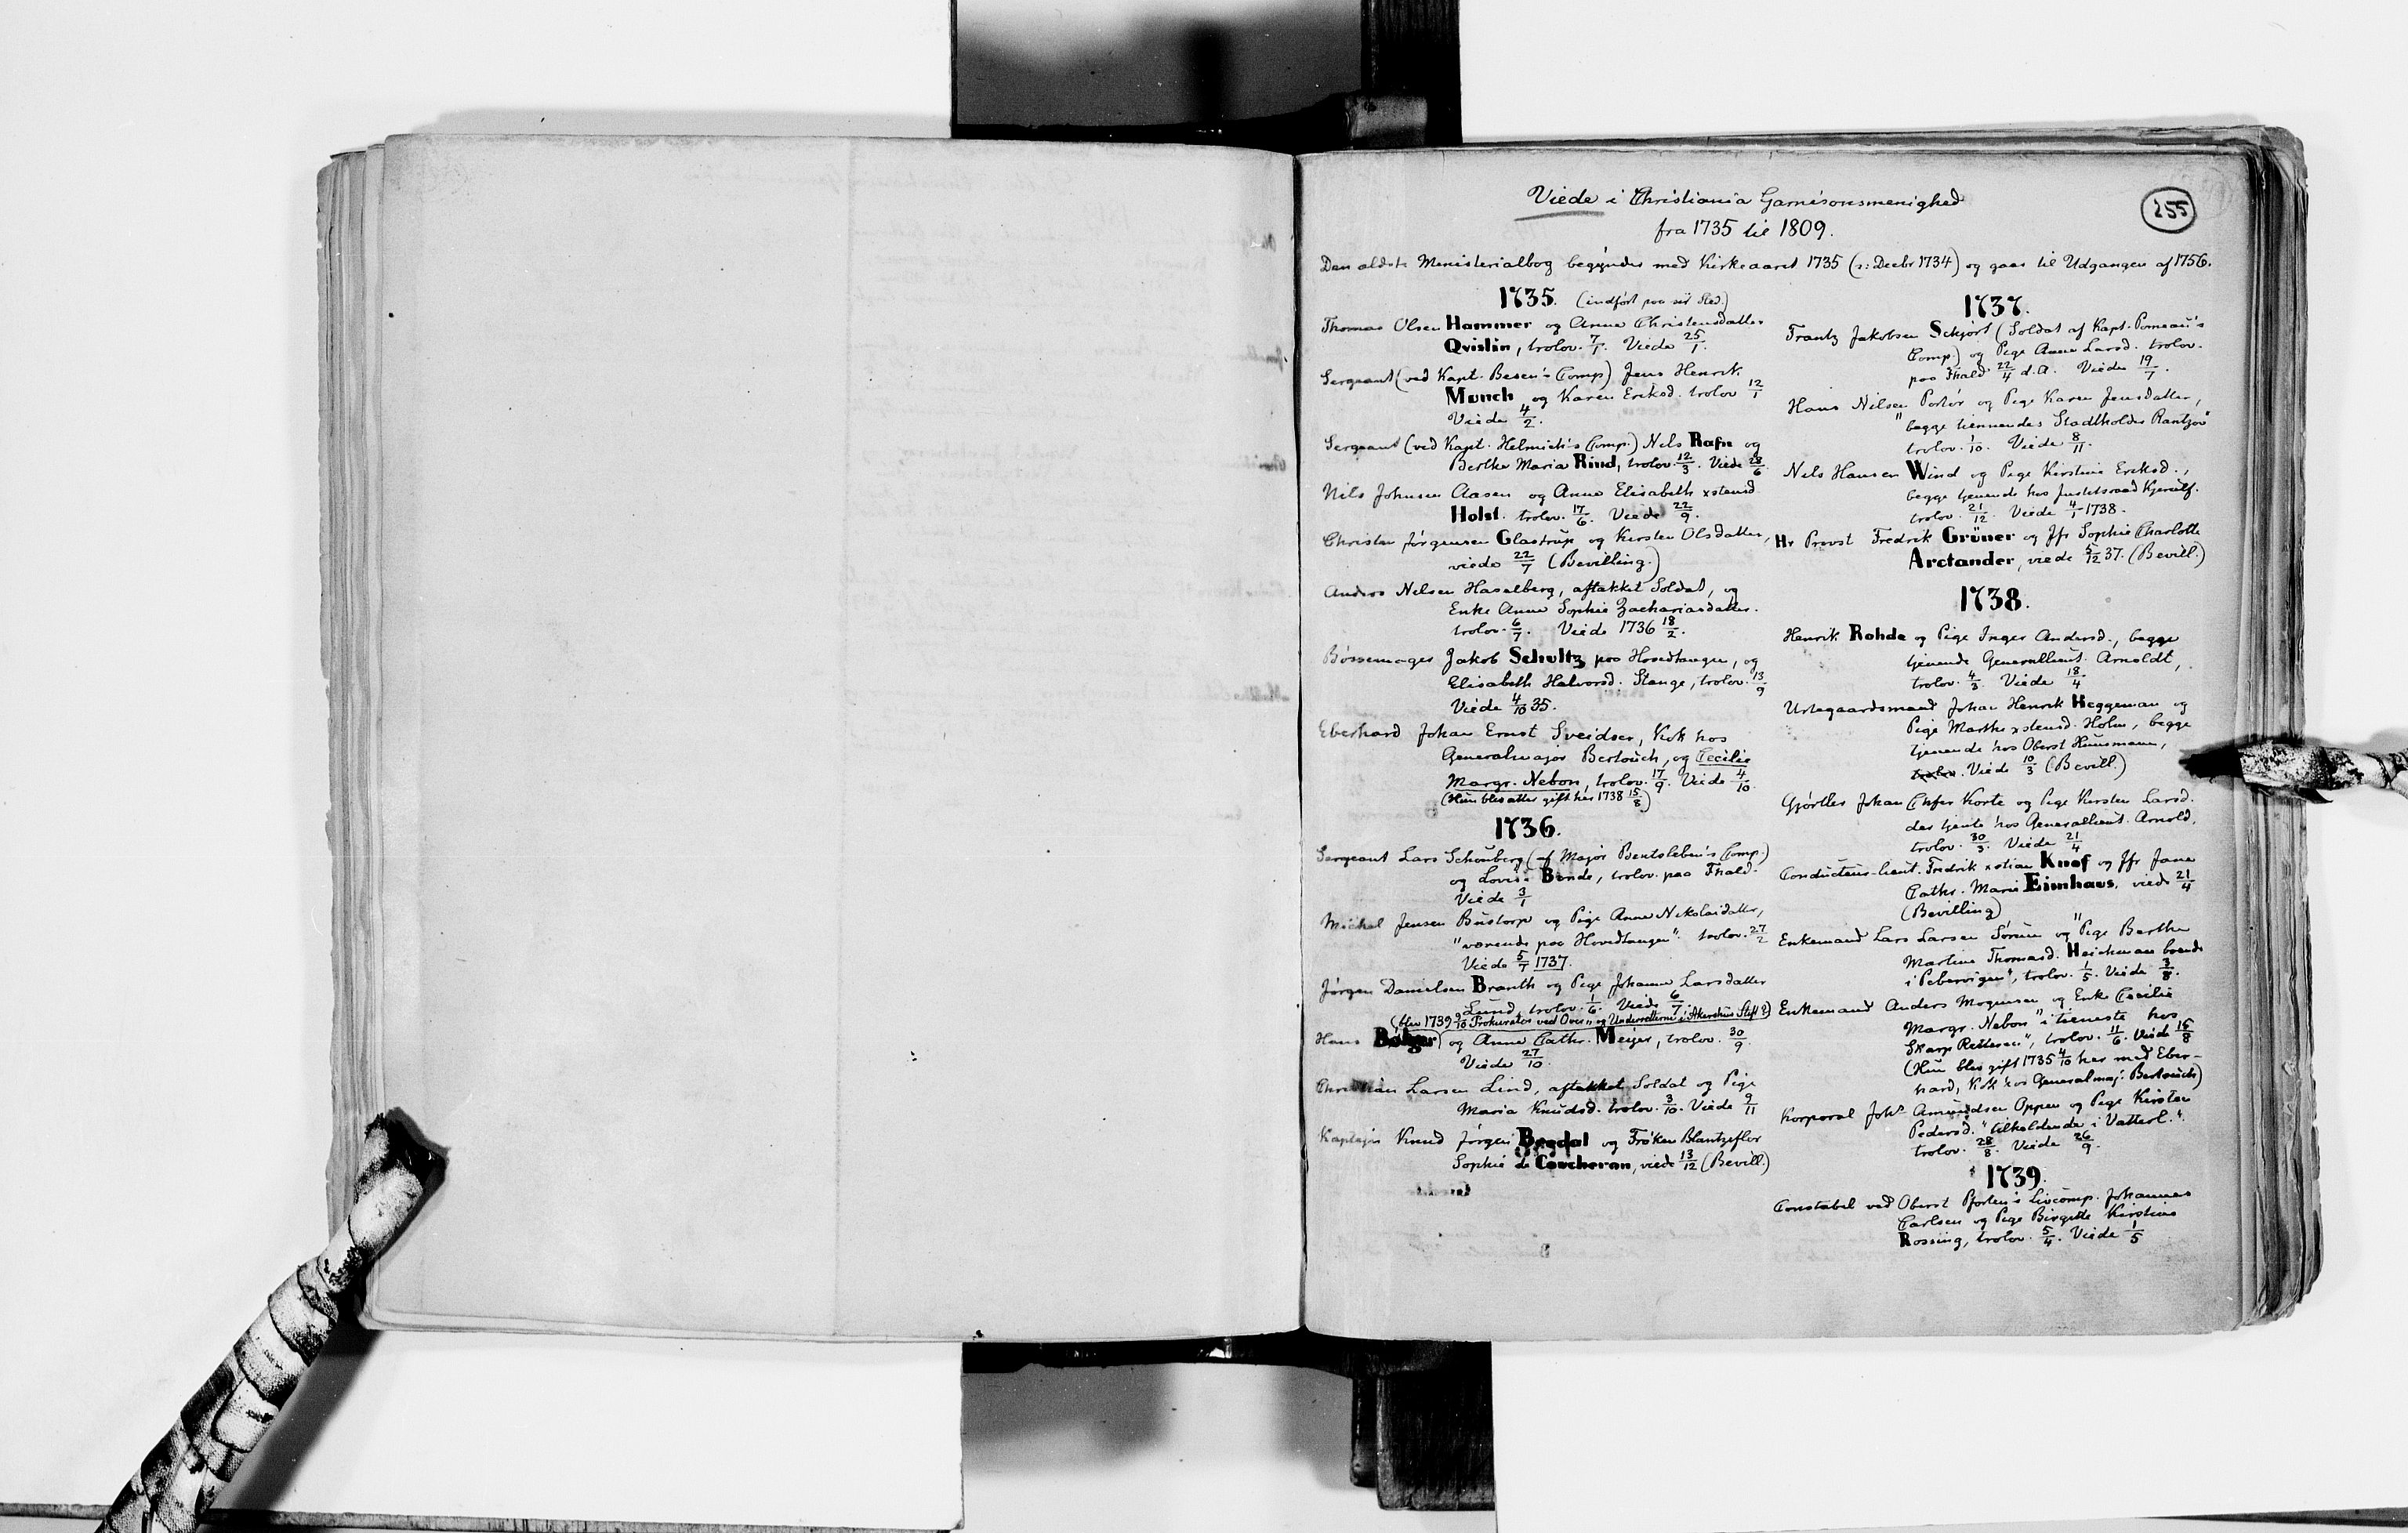 255
Viede i Christiania Garnisonsmenighed
fra 1735 til 1809.
Den ældste Ministerialbog begynder med Kirkeaaret 1735 (ɔ: Decbr 1734) og gaar til Udgangen af 1756.
1735. (indført paa sit Sted.)
Thomas Olsen Hammer og Anne Christensdatter
Qvislin, trolov. 7/1. Viede 25/1.
Sergeant (ved Kapt. Besen's Comp) Jens Henrik
Munch og Karen Eriksd. trolov 12/1
Viede 4/2.
Sergeant (ved Kapt. Helmich's Comp.) Nels Rafn og
Berthe Maria Rind, trolov. 12/3. Viede 28/6.
Nils Johnsen Aasen og Anne Elisabeth xstensd.
Holst. trolov. 17/6. Viede 22/9.
Christen Jørgensen Glastrup og Kirsten Olsdatter,
viede 22/7 (Bevilling.)
Anders Nilsen Haselberg, aftakket Soldat, og
Enke Anne Sophie Zachariasdatter.
trolov. 6/7. Viede 1736 18/2.
Bøssemager Jakob Schultz paa Hovedtangen, og
Elisabeth Halvorsd. Stange, trolov. 13/9
Viede 4/10 35.
Eberhard Johan Ernst Sveidser, Kok hos
Generalmajor Bertouch, og Cecilie
Margr. Nebon, trolov. 17/9. Viede 4/10.
(Hun blev atter gift her 1738 15/8)
1736.
Sergeant Lars Schouberg (af Major Bentsleben's Comp.)
og Lovise Bonde, trolov. paa Fhald.
Viede 3/1
Michel Jensen Bustorp og Pige Anne Nikolaidatter,
"værende paa Hovedtangen". trolov. 27/2
Viede 5/7 1737.
Jørgen Danielsen Branth og Pige Johanne Larsdatter
Lund, trolov. 1/6. Viede 6/7
(blev 1739 9/10 Prokurator ved Over- og Underretterne i Akershus Stift?)
Hans Bølger og Anne Cathr. Meyer, trolov. 30/9.
Viede 27/10.
Christian Larsen Lind, aftakket Soldat og Pige
Maria Knudsd. trolov. 3/10. Viede 9/11
Kaptejn Knud Jørgen Begdal og Frøken Blantzeflor
Sophie de Coucheron, viede 13/12 (Bevill.)
1737.
Frantz Jakobsen Schjørt (Soldat af Kapt. Pomeau's
Comp) og Pige Anne Larsd. trolov.
paa Fhald 22/4 d.A. Viede 19/7.
Hans Nilsen Portør og Pige Karen Jensdatter,
"begge tiennendes Stadtholder Rantzov"
trolov. 1/10. Viede 8/11.
Nels Hansen Wind og Pige Kirstine Eriksd.,
begge tjenende hos Justitsraad Kjerulf.
trolov. 21/12. Viede 4/1 1738.
Hr Provst Fredrik Grüner og Jfr Sophie Charlotte
Arctander, viede 5/12 37. (Bevill.)
1738.
Henrik Rohde og Pige Inger Andersd., begge
tjenende Generallieut. Arnoldt,
trolov. 4/3. Viede 18/4
Urtegaardsmand Johan Henrik Heggeman og
Pige Marthe xstensd. Holm, begge
tjenende hos Oberst Hunsmann,
trolov. Viede 10/3 (Bevill.)
Gjørtler Johan Chfer Korte og Pige Kirsten Larsd.
der tjente hos Generallieut. Arnold,
trolov. 30/3. Viede 21/4
Conducteur-lieut. Fredrik xstian Knof og Jfr Jane
Cathr. Marie Eimhaus, viede 21/4
(Bevilling)
Enkemand Lars Larsen Sørum og "Pige Berthe
Martine Thomasd. Heichman boende
i Pebervigen", trolov. 1/5. Viede 3/8.
Enkemand Anders Mogensen og Enke Cecilie
Margr. Nebon "i tieneste hos
Skarp Retteren", trolov. 11/6. Viede 15/8
(Hun blev gift 1735 4/10 her med Eber-
hard, Kok hos Generalmaj. Bertouch)
Korporal Johs Amundsen Oppen og Pige Kirsten
Pedersd. "tilholdende i Vatterl."
trolov. 28/8. Viede 26/9.
1739.
Constabel ved Oberst Pforten's Livcomp. Johannes
Carlsen og Pige Birgitte Kirstine
Rossing, trolov. 5/4. Viede 1/5